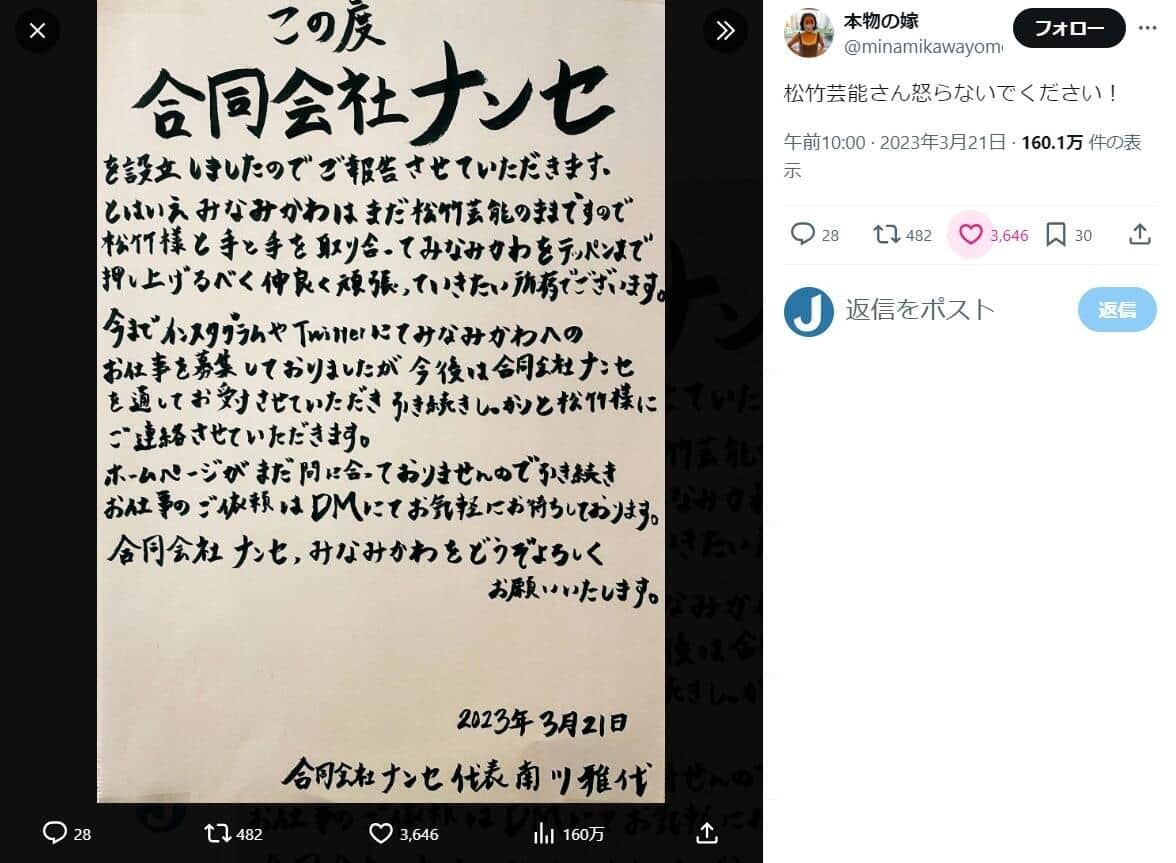 この度
合同会社ナンセ
を設立しましたのでご報告させていただきます。
とはいえみなみかわはまだ松竹芸能のままですので
松竹様と手と手を取り合ってみなみかわをテッパンまで
押し上げるべく仲良く頑張っていきたい所存でございます。
今までインスタグラムやTwitterにてみなみかわへの
お仕事を募集しておりましたが今後は合同会社ナンセ
を通してお受けさせていただき引き続きしっかりと松竹様に
ご連絡させていただきます。
ホームページがまだ間に合っておりませんので引き続き
お仕事のご依頼はDMにてお気軽にお待ちしております。
合同会社ナンセ,みなみかわをどうぞよろしく
お願いいたします。
2023年3月21日
合同会社ナンセ代表南川雅代
28
482
3,646
160万
本物の嫁
@minamikawayom
フォロー
松竹芸能さん怒らないでください！
午前10:00 · 2023年3月21日 · 160.1万 件の表
示
28
482
3,646
30
J
返信をポスト
返信